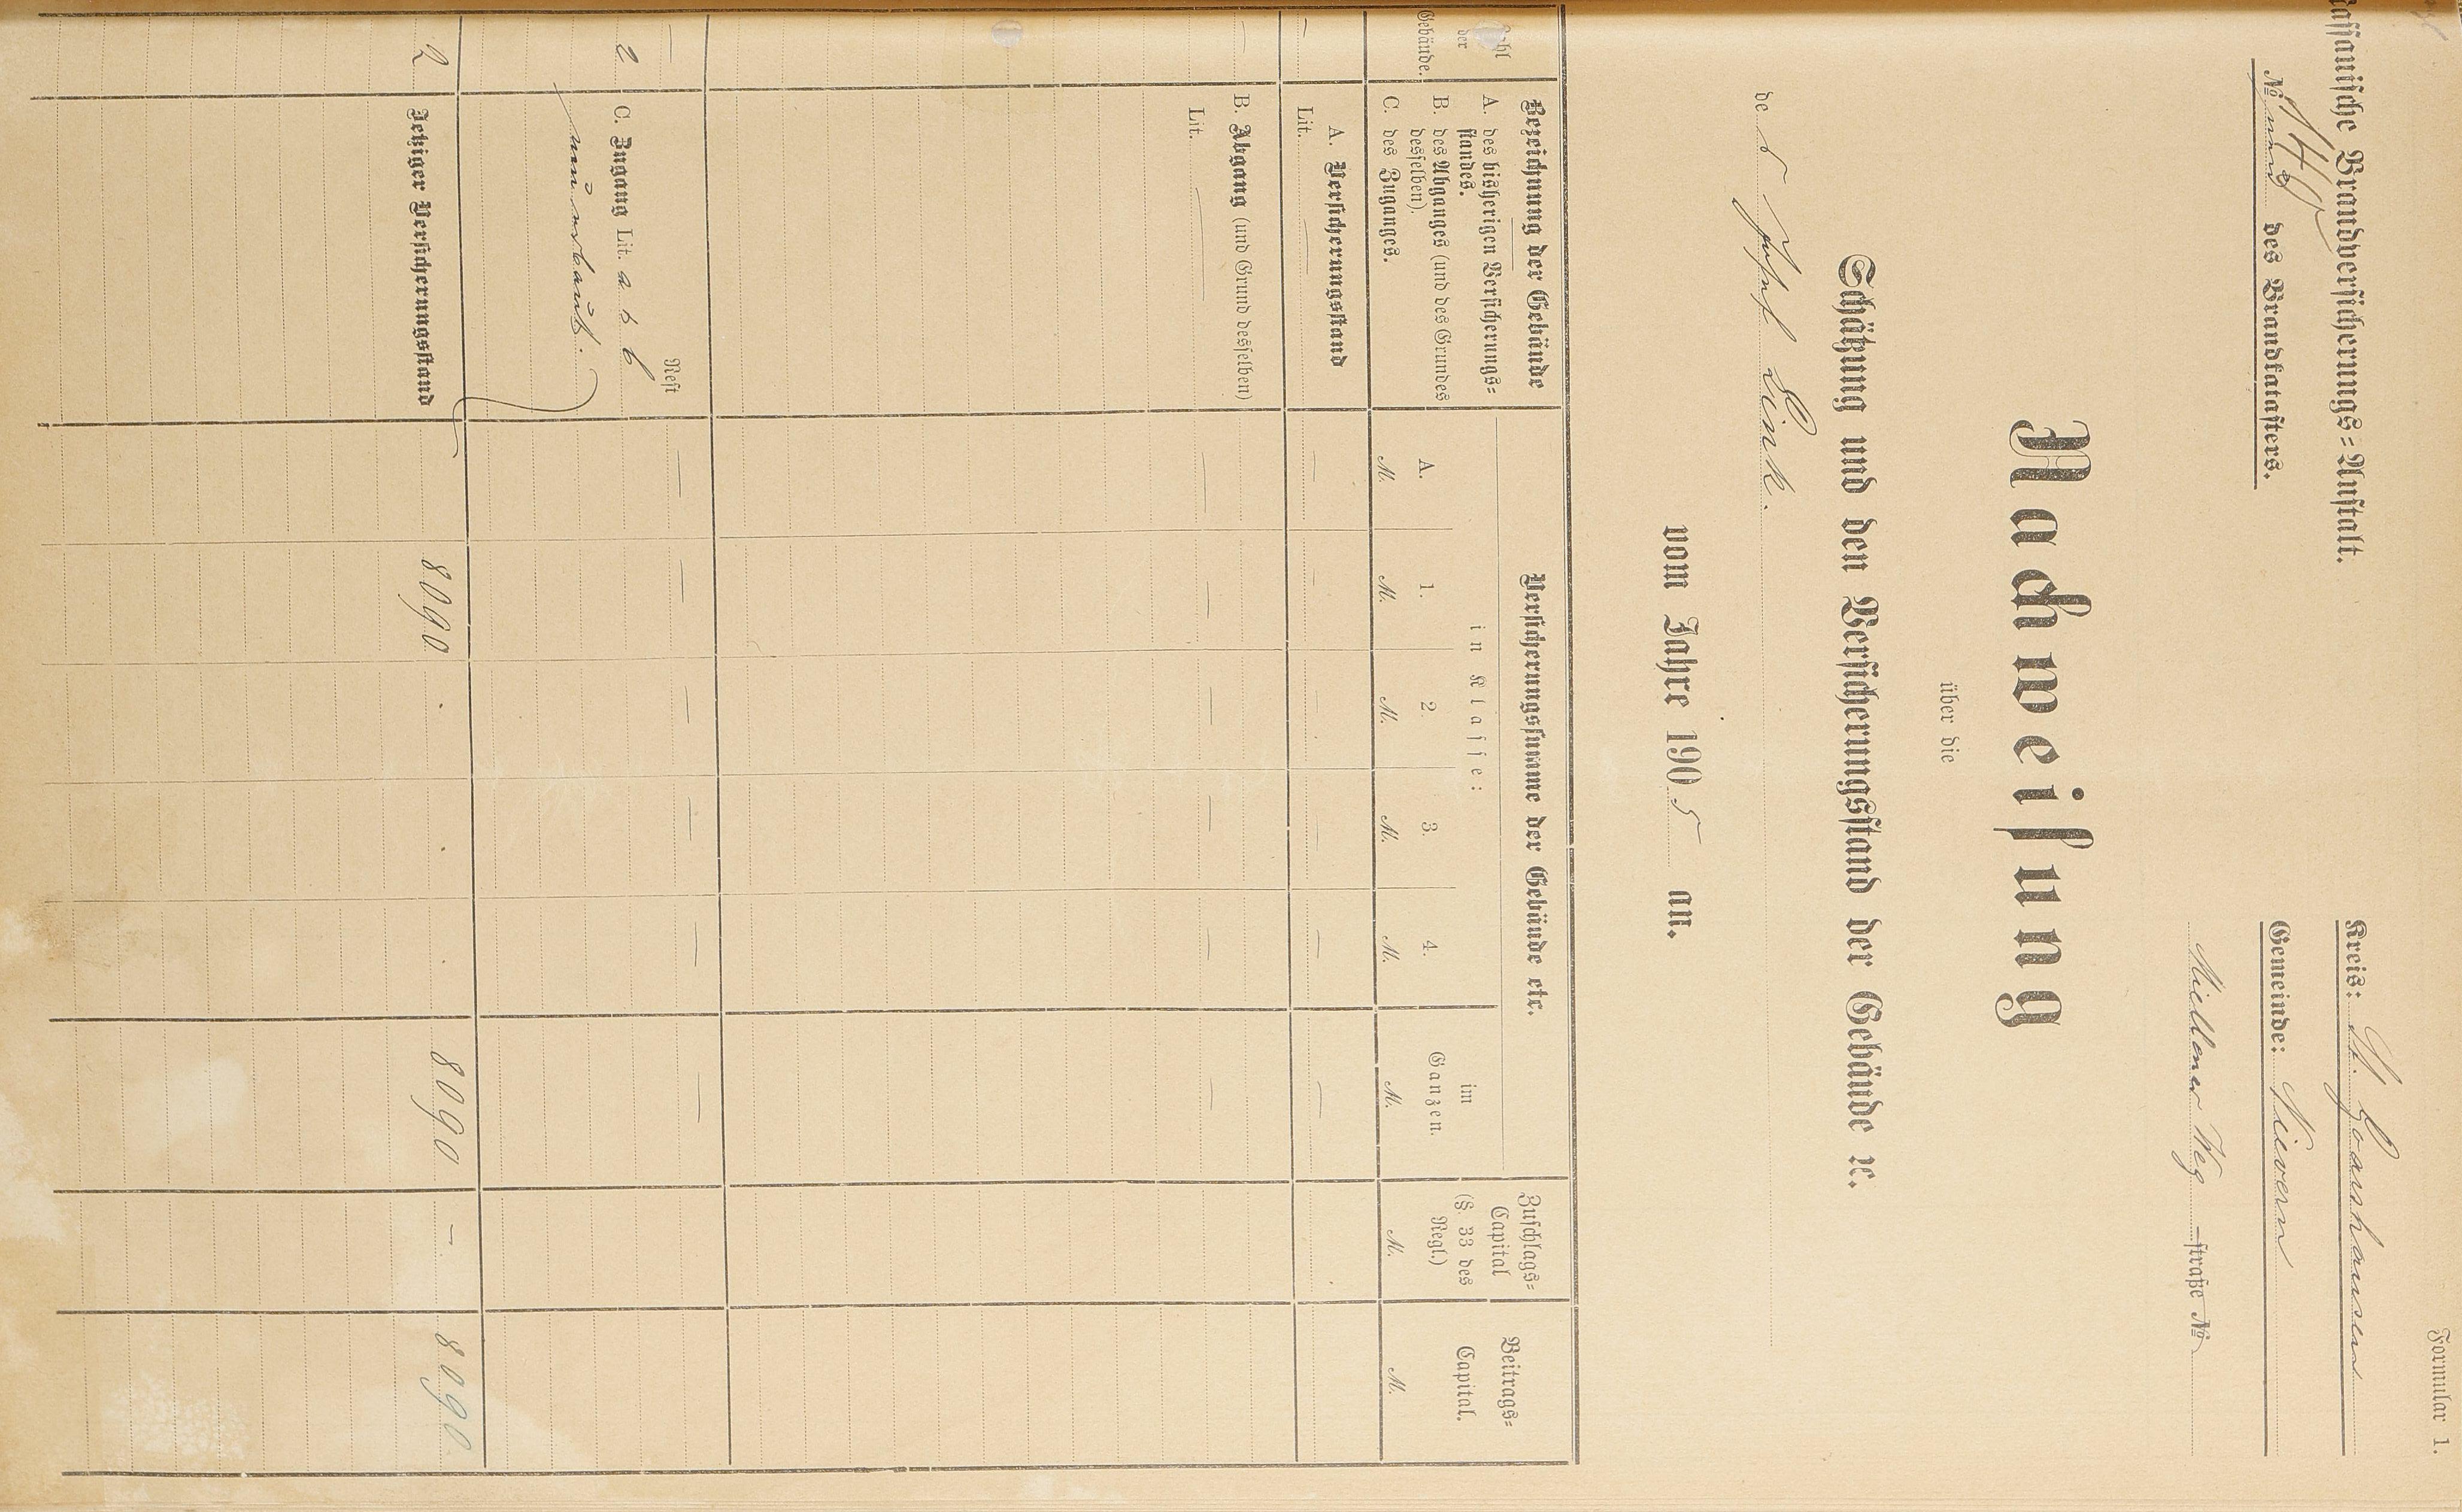 Formular 1.
Nassauische Brandversicherungs=Anstalt.
Kreis: St. Goarshausen
№ des Brandkatasters.
Gemeinde: Nievern
Miellener Weg -straße №
Nachweisung
über die
Schätzung und den Versicherungsstand der Gebäude ꝛc.
des Josef Link.
vom Jahre 1905 an.
Zahl der Gebäude.
Bezeichnung der Gebäude
A. des bisherigen Versicherungs=
standes.
B. des Abganges (und des Grundes
desselben).
C. des Zuganges.
Versicherungssumme der Gebäude etc.
in Klasse:
A. 1. 2. 3. 4.
im
Ganzen.
Zuschlags=
Capital
(§. 33 des
Regl.)
Beitrags=
Capital.
M. M. M. M. M. M. M. M.
A. Versicherungsstand
— Lit. — — — — — — —
B. Abgang (und Grund desselben)
— Lit. — — — — — — —
— Rest — — — — — —
2 C. Zugang Lit. a & b
neu erbaut.
2 Jetziger Versicherungsstand 8090 . . . 8090 — 8090